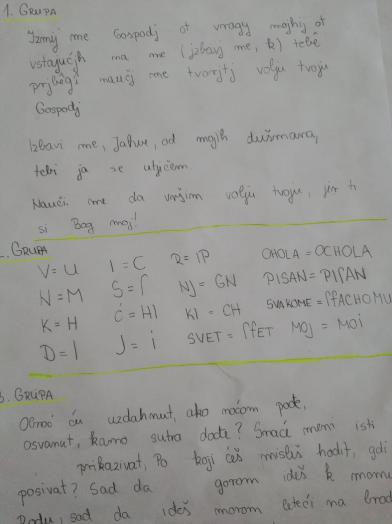 1. GRUPA
Izmij me Gospodj ot vragy mojhij ot
vstajućjh na me (jzbavj me, k) tebě
prjběgź naučj me tvorjtj volju tvoju
Gospodj
Izbavi me, Jahve, od mojih dušmana,
tebi ja se utječem.
Nauči me da vršim volju tvoju, jer ti
si Bog moj!
2. GRUPA
V=U I=C R=IP OHOLA=OCHOLA
N=M S=ſ NJ=GN PISAN=PIſAN
K=H Ć=HI KI=CH SVAKOME=ſſACHOMU
D=I J=i SVET=ſſET MOJ=MOI
3. GRUPA
ću uzdahnut, ako noćom pođe,
osvanut, kamo sutra dođe? Smaće meni isti
prikazivat, Po koji ćeš misleš hodit, gdi
posivat? Sad da gorom ideš k momu
sad da ideš morom leteći na